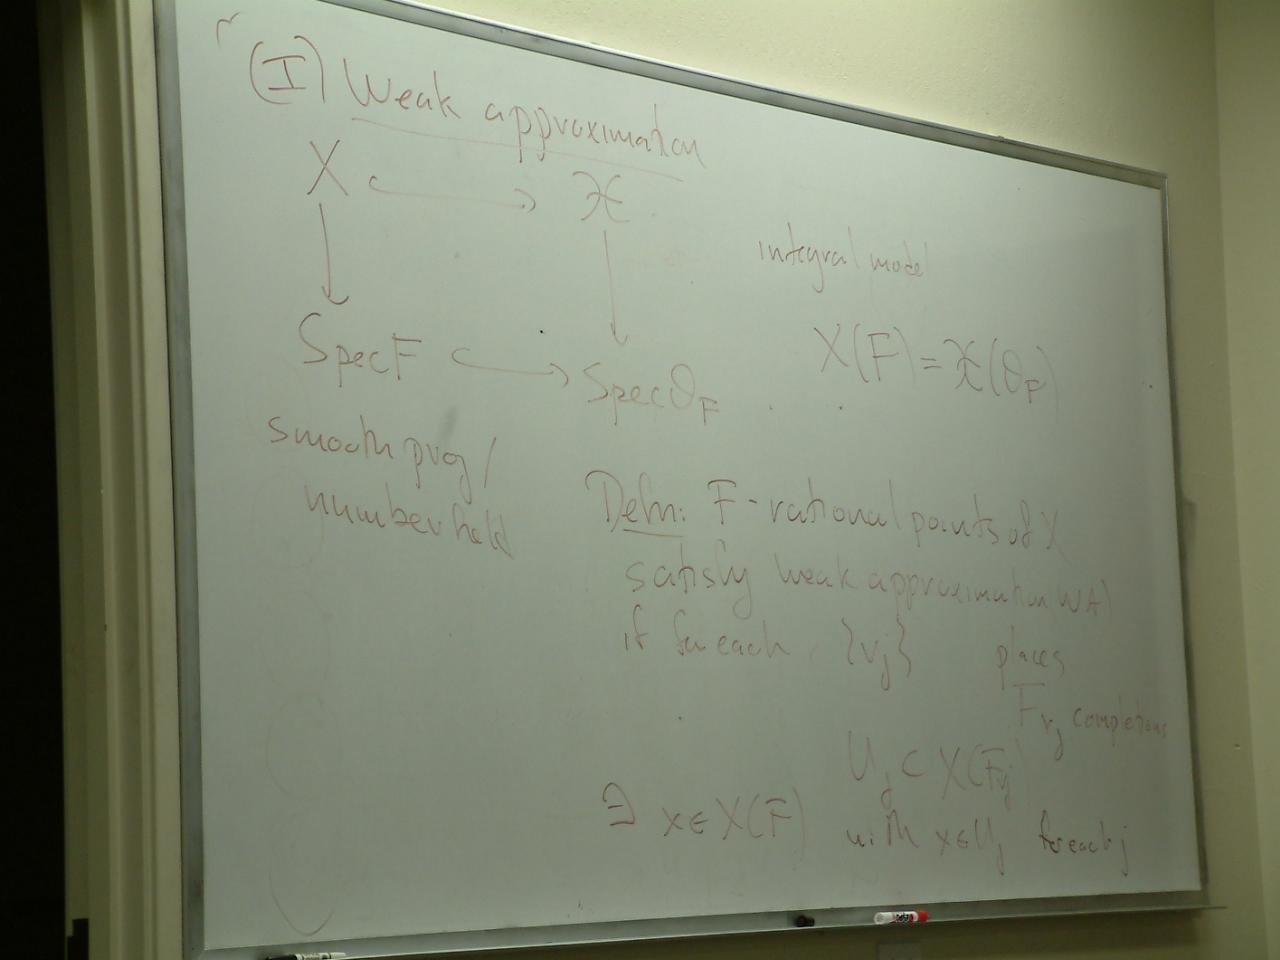 (I) Weak approximation
X ↪ 𝒳
integral model
X(F) = 𝒳(O_F)
Spec F ↪ Spec O_F
smooth proj /
number field
Defn: F-rational points of X
satisfy weak approximation WA)
if for each {v_j} places
F_{v_j} completions
U_j ⊂ X(F_{v_j})
∃ x ∈ X(F) with x ∈ U_j for each j